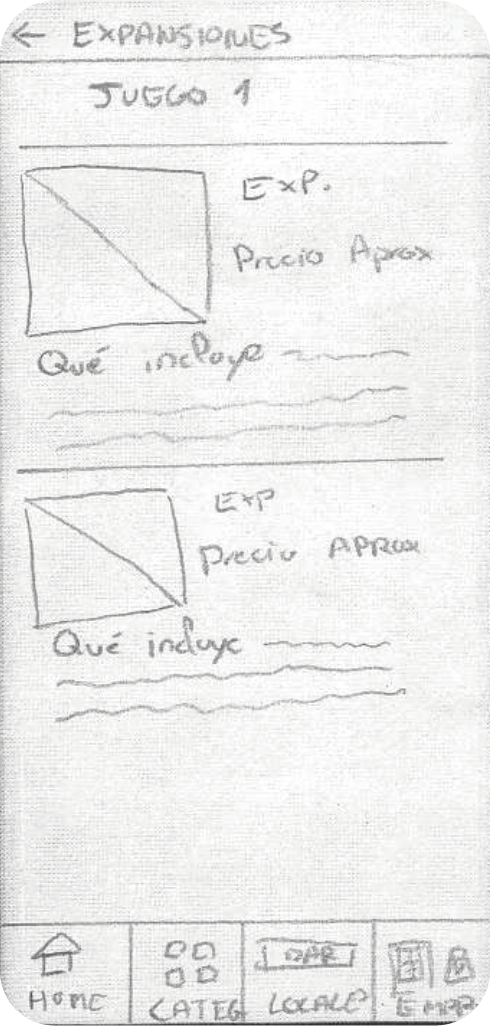 ← EXPANSIONES
JUEGO 1
EXP.
Precio Aprox
Qué incluye
EXP
Precio APROX
Qué incluye
HOME
CATEG
BAR
LOCALES